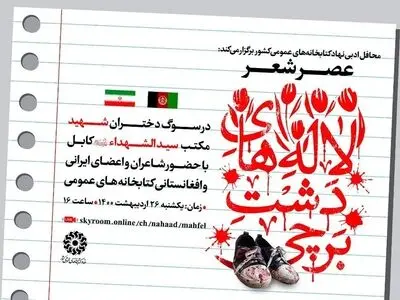 محافل ادبی نهاد کتابخانه‌های عمومی کشور برگزار می‌کند:
عصر شعر
لاله‌های
دشت
برچی
در سوگ دختران شهید
مکتب سیدالشهداء کابل
با حضور شاعران و اعضای ایرانی
و افغانستانی کتابخانه‌های عمومی
• زمان: یکشنبه ۲۶ اردیبهشت ۱۴۰۰ • ساعت ۱۶
skyroom.online/ch/nahaad/mahfel